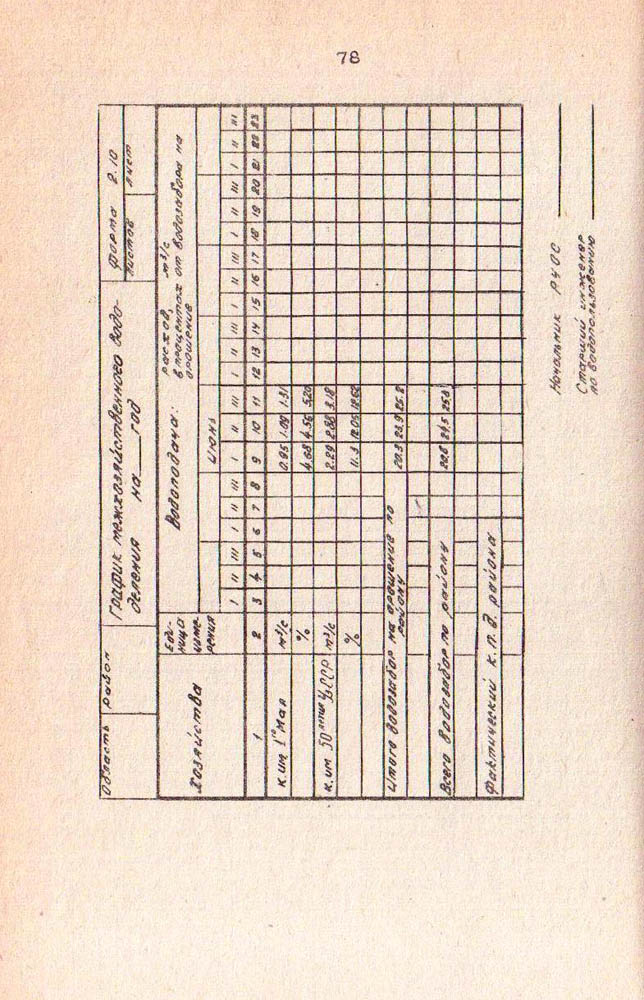 78
Область
район
График межхозяйственного водо-
деления на ___ год
Форма 2.10
листов
лист
Хозяйства
Еди-
ница
изме-
рения
Водоподача:
расход, м³/с
в процентах от водозабора на
орошение
июнь
I II III I II III I II III I II III I II III I II III I II III
1 2 3 4 5 6 7 8 9 10 11 12 13 14 15 16 17 18 19 20 21 22 23
к. им 1го Мая м³/с 0.95 1.09 1.31
% 4.68 4.56 5.20
к. им 50 летия УзССР м³/с 2.29 2.88 3.18
% 11.3 12.05 12.62
Итого водозабор на орошение по
району 20.3 23.9 25.2
Всего водозабор по району
Фактический к.п.д. района
Начальник РУОС
Старший инженер
по водопользованию